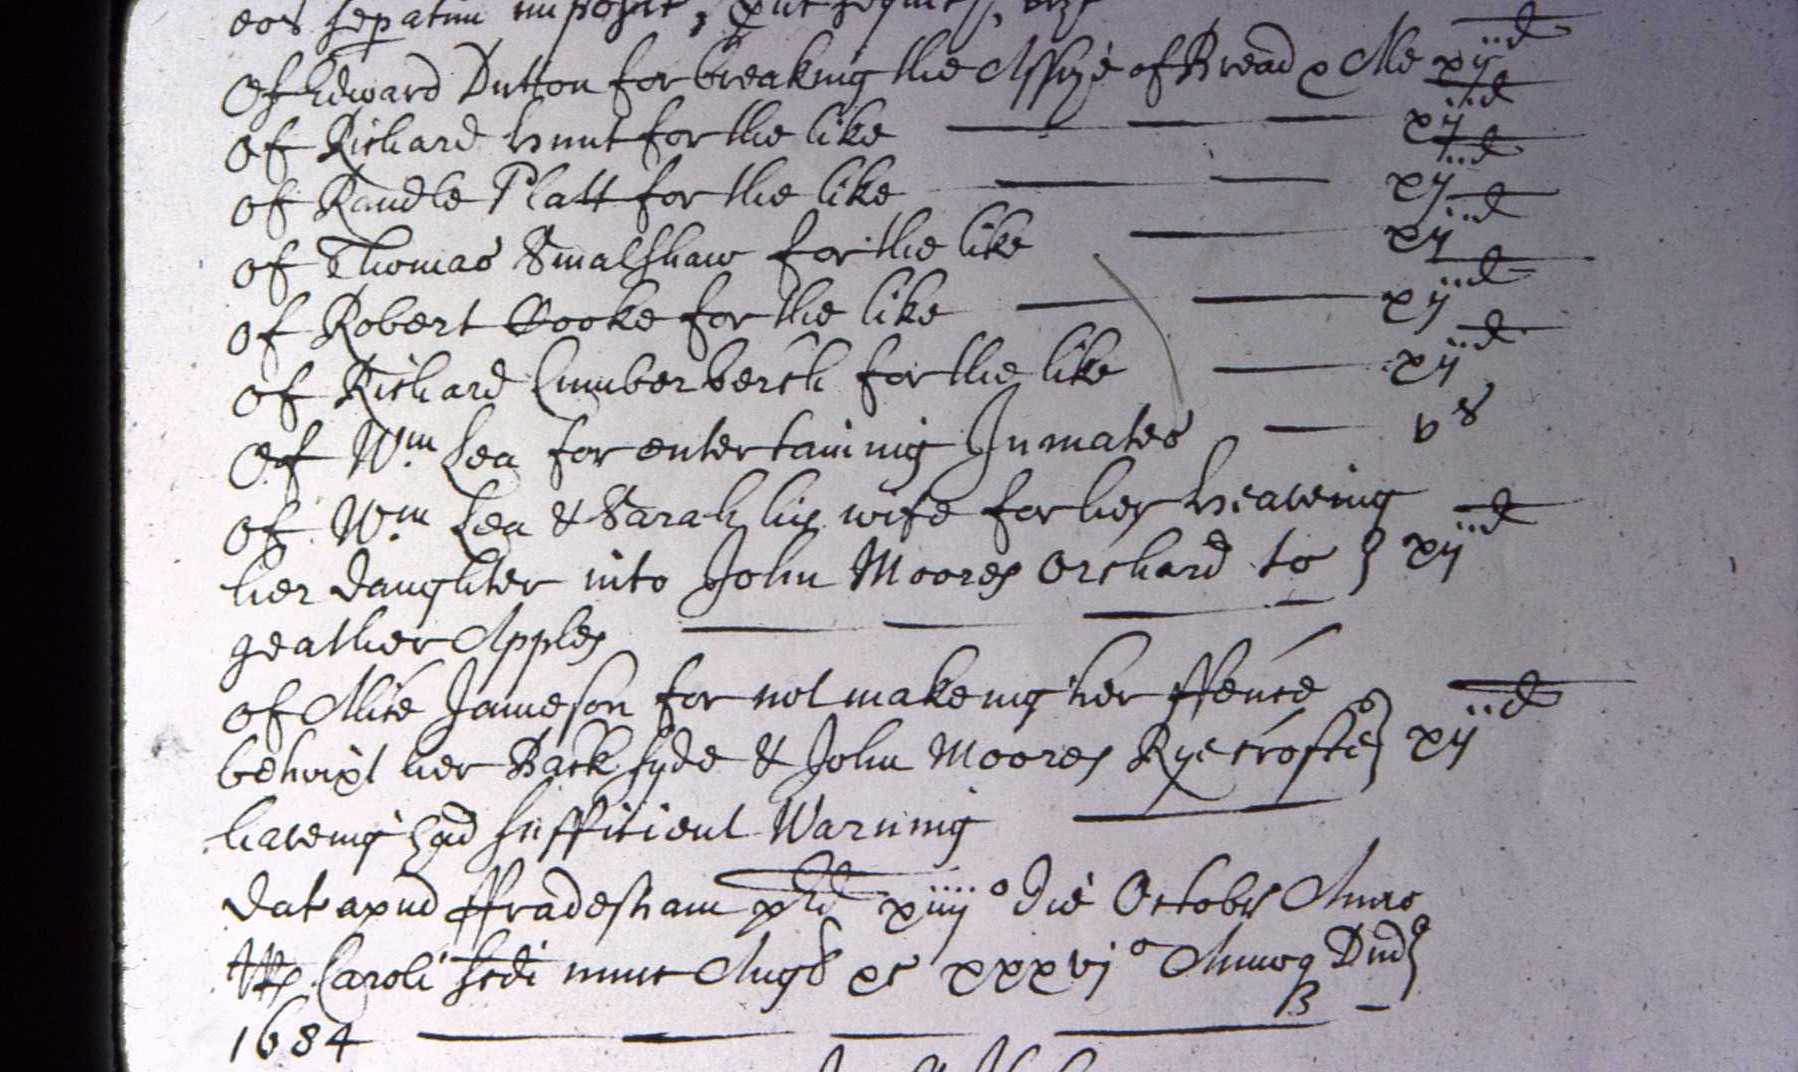 eos sepatim imposit, put sequitr, vizt
Of Edward Dutton for breaking the Assize of Bread & Ale xijd
of Richard Hunt for the like xijd
of Randle Platt for the like xijd
of Thomas Smalshaw for the like xijd
of Robert Cooke for the like xijd
of Richard Cumberbech for the like xijd
Of Wm Lea for entertaining Inmates vs
of Wm Lea & Sarah his wife for her heaveing
her daughter into John Moores Orchard to xijd
geather Apples
of Alice Jameson for not makeing her ffence
betwixt her Back syde & John Moores Rye crofte xijd
haveing had sufficient Warning
Dat apud ffradesham xiiijo die Octobr Anno
Caroli scdi nunc Angl xxxvjo Annoq Dnd
1684